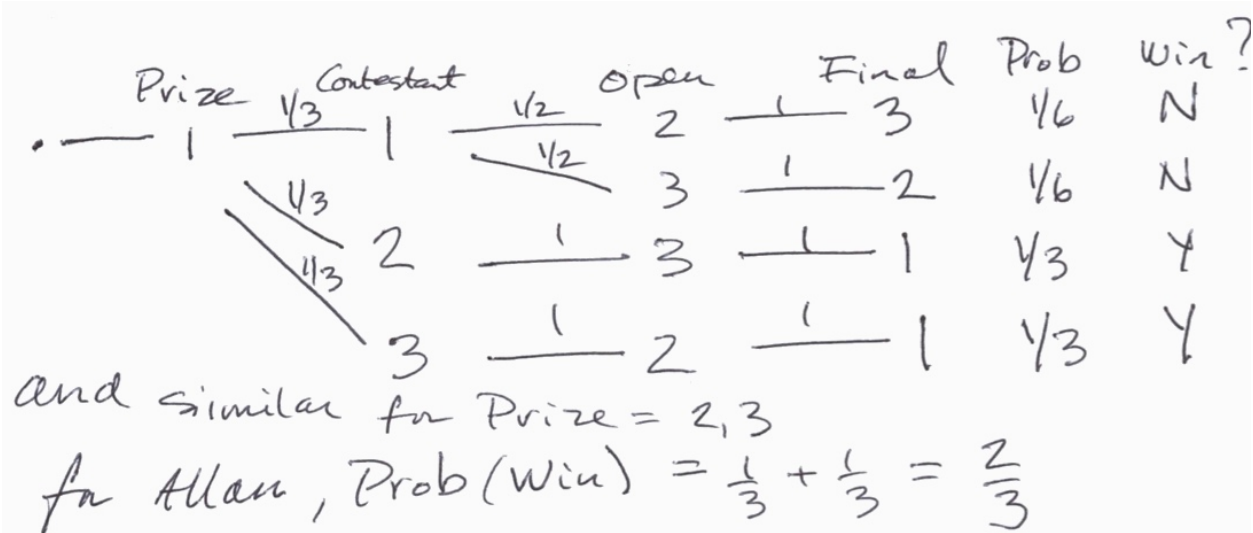 Prize Contestant Open Final Prob Win?
1 1/3 1 1/2 2 1 3 1/6 N
1/2 3 1 2 1/6 N
1/3 2 1 3 1 1 1/3 Y
1/3 3 1 2 1 1 1/3 Y
and similar for Prize = 2,3
for Allan, Prob(Win) = 1/3 + 1/3 = 2/3